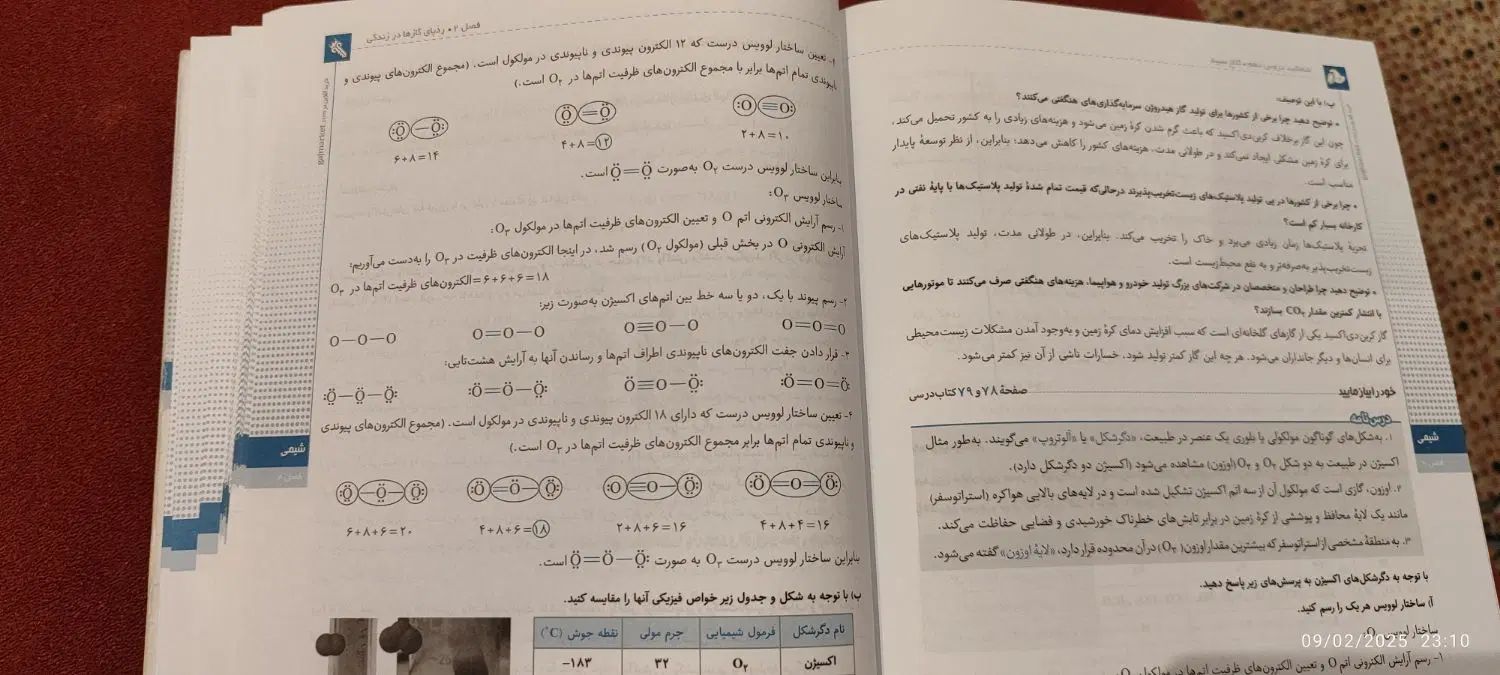 ب) با این توصیف:
• توضیح دهید چرا برخی از کشورها برای تولید گاز هیدروژن سرمایه‌گذاری‌های هنگفتی می‌کنند؟
چون این گاز برخلاف کربن‌دی‌اکسید که باعث گرم شدن کرهٔ زمین می‌شود و هزینه‌های زیادی را به کشور تحمیل می‌کند،
برای کرهٔ زمین مشکلی ایجاد نمی‌کند و در طولانی مدت، هزینه‌های کشور را کاهش می‌دهد؛ بنابراین، از نظر توسعهٔ پایدار
مناسب است.
• چرا برخی از کشورها در پی تولید پلاستیک‌های زیست‌تخریب‌پذیرند درحالی‌که قیمت تمام شدهٔ تولید پلاستیک‌ها با پایهٔ نفتی در
کارخانه بسیار کم است؟
تجزیهٔ پلاستیک‌ها زمان زیادی می‌برد و خاک را تخریب می‌کند. بنابراین، در طولانی مدت، تولید پلاستیک‌های
زیست‌تخریب‌پذیر به‌صرفه‌تر و به نفع محیط‌زیست است.
• توضیح دهید چرا طراحان و متخصصان در شرکت‌های بزرگ تولید خودرو و هواپیما، هزینه‌های هنگفتی صرف می‌کنند تا موتورهایی
با انتشار کمترین مقدار CO₂ بسازند؟
گاز کربن‌دی‌اکسید یکی از گازهای گلخانه‌ای است که سبب افزایش دمای کرهٔ زمین و به‌وجود آمدن مشکلات زیست‌محیطی
برای انسان‌ها و دیگر جانداران می‌شود. هر چه این گاز کمتر تولید شود، خسارات ناشی از آن نیز کمتر می‌شود.
خود را بیازمایید صفحهٔ ۷۸ و ۷۹ کتاب درسی
درس‌نامه
۱. به‌شکل‌های گوناگون مولکولی یا بلوری یک عنصر در طبیعت، «دگرشکل» یا «آلوتروپ» می‌گویند. به‌طور مثال
اکسیژن در طبیعت به دو شکل O₂ و O₃ (اوزون) مشاهده می‌شود (اکسیژن دو دگرشکل دارد).
۲. اوزون، گازی است که مولکول آن از سه اتم اکسیژن تشکیل شده است و در لایه‌های بالایی هواکره (استراتوسفر)
مانند یک لایهٔ محافظ و پوششی از کرهٔ زمین در برابر تابش‌های خطرناک خورشیدی و فضایی حفاظت می‌کند.
۳. به منطقهٔ مشخصی از استراتوسفر که بیشترین مقدار اوزون (O₃) در آن محدوده قرار دارد، «لایهٔ اوزون» گفته می‌شود.
با توجه به دگرشکل‌های اکسیژن به پرسش‌های زیر پاسخ دهید.
آ) ساختار لوویس هر یک را رسم کنید.
ساختار لوویس
۱- رسم آرایش الکترونی اتم O و تعیین الکترون‌های ظرفیت اتم‌ها در مولکول
شیمی
09/02/2025 23:10
فصل ۲ • ردپای گازها در زندگی
۴- تعیین ساختار لوویس درست که ۱۲ الکترون پیوندی و ناپیوندی در مولکول است. (مجموع الکترون‌های پیوندی و
ناپیوندی تمام اتم‌ها برابر با مجموع الکترون‌های ظرفیت اتم‌ها در O₂ است.)
:Ö—Ö: Ö=Ö :O≡O:
۶+۸=۱۴ ۴+۸=۱۲ ۲+۸=۱۰
بنابراین ساختار لوویس درست O₂ به‌صورت Ö=Ö است.
ساختار لوویس O₃:
۱- رسم آرایش الکترونی اتم O و تعیین الکترون‌های ظرفیت اتم‌ها در مولکول O₃:
آرایش الکترونی O در بخش قبلی (مولکول O₂) رسم شد، در اینجا الکترون‌های ظرفیت در O₃ را به‌دست می‌آوریم:
الکترون‌های ظرفیت اتم‌ها در O₃ = ۶+۶+۶=۱۸
۲- رسم پیوند با یک، دو یا سه خط بین اتم‌های اکسیژن به‌صورت زیر:
O—O—O O=O—O O≡O—O O=O=O
۳- قرار دادن جفت الکترون‌های ناپیوندی اطراف اتم‌ها و رساندن آنها به آرایش هشت‌تایی:
:Ö—Ö—Ö: :Ö=Ö—Ö: Ö≡O—Ö: :Ö=O=Ö:
۴- تعیین ساختار لوویس درست که دارای ۱۸ الکترون پیوندی و ناپیوندی در مولکول است. (مجموع الکترون‌های پیوندی
و ناپیوندی تمام اتم‌ها برابر مجموع الکترون‌های ظرفیت اتم‌ها در O₃ است.)
:Ö—Ö—Ö: :Ö=Ö—Ö: :O≡O—Ö: :Ö=O=Ö:
۶+۸+۶=۲۰ ۴+۸+۶=۱۸ ۲+۸+۶=۱۶ ۴+۸+۴=۱۶
بنابراین ساختار لوویس درست O₃ به صورت Ö=Ö—Ö: است.
ب) با توجه به شکل و جدول زیر خواص فیزیکی آنها را مقایسه کنید.
نام دگرشکل فرمول شیمیایی جرم مولی نقطه جوش (°C)
اکسیژن O₂ ۳۲ −۱۸۳
شیمی
فصل ۲